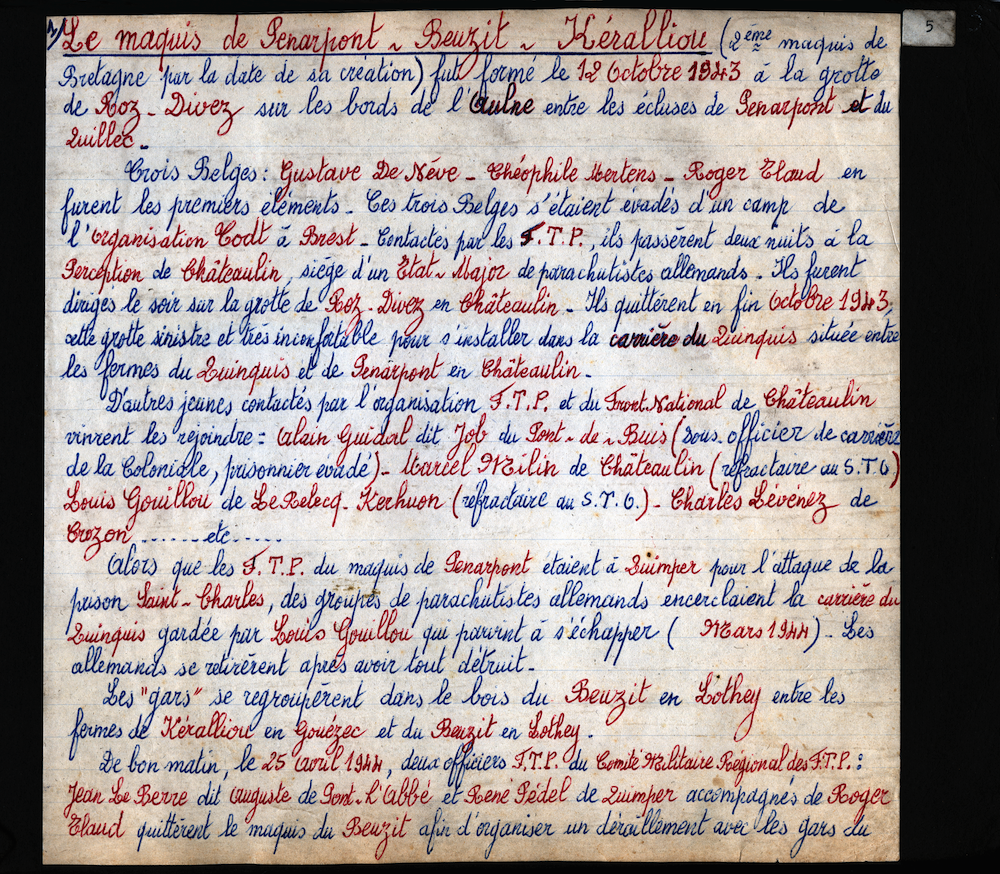 5
1/ Le maquis de Penarpont ~ Beuzit ~ Kéralliou (2ème maquis de
Bretagne par la date de sa création) fut formé le 12 Octobre 1943 à la grotte
de Roz-Divez sur les bords de l'Aulne entre les écluses de Penarpont et du
Guillec.
Trois Belges : Gustave De Néve - Théophile Mertens - Roger Elaud en
furent les premiers éléments - Ces trois Belges s'étaient évadés d'un camp de
l'Organisation Todt à Brest - Contactés par les F.T.P., ils passèrent deux nuits à la
Perception de Châteaulin, siège d'un Etat-Major de parachutistes allemands - Ils furent
dirigés le soir sur la grotte de Roz-Divez en Châteaulin - Ils quittèrent en fin Octobre 1943,
cette grotte sinistre et très inconfortable pour s'installer dans la carrière du Quinquis située entre
les fermes du Quinquis et de Penarpont en Châteaulin -
D'autres jeunes contactés par l'organisation F.T.P. et du Front National de Châteaulin
vinrent les rejoindre = Alain Guidal dit Job du Pont-de-Buis (sous officier de carrière
de la Coloniale, prisonnier évadé) - Marcel Milin de Châteaulin (réfractaire au S.T.O)
Louis Gouillou de Le Relecq-Kerhuon (réfractaire au S.T.O.) - Charles Lévénez de
Crozon ......etc.....
Alors que les F.T.P. du maquis de Penarpont étaient à Quimper pour l'attaque de la
prison Saint-Charles, des groupes de parachutistes allemands encerclaient la carrière du
Quinquis gardée par Louis Gouillou qui parvint à s'échapper ( Mars 1944) - Les
allemands se retirèrent après avoir tout détruit -
Les "gars" se regroupèrent dans le bois du Beuzit en Lothey entre les
fermes de Kéralliou en Gouézec et du Beuzit en Lothey.
De bon matin, le 25 avril 1944, deux officiers F.T.P. du Comité Militaire Régional des F.T.P. :
Jean Le Berre dit Auguste de Pont-l'Abbé et René Pédel de Quimper accompagnés de Roger
Elaud quittèrent le maquis du Beuzit afin d'organiser un déraillement avec les gars du